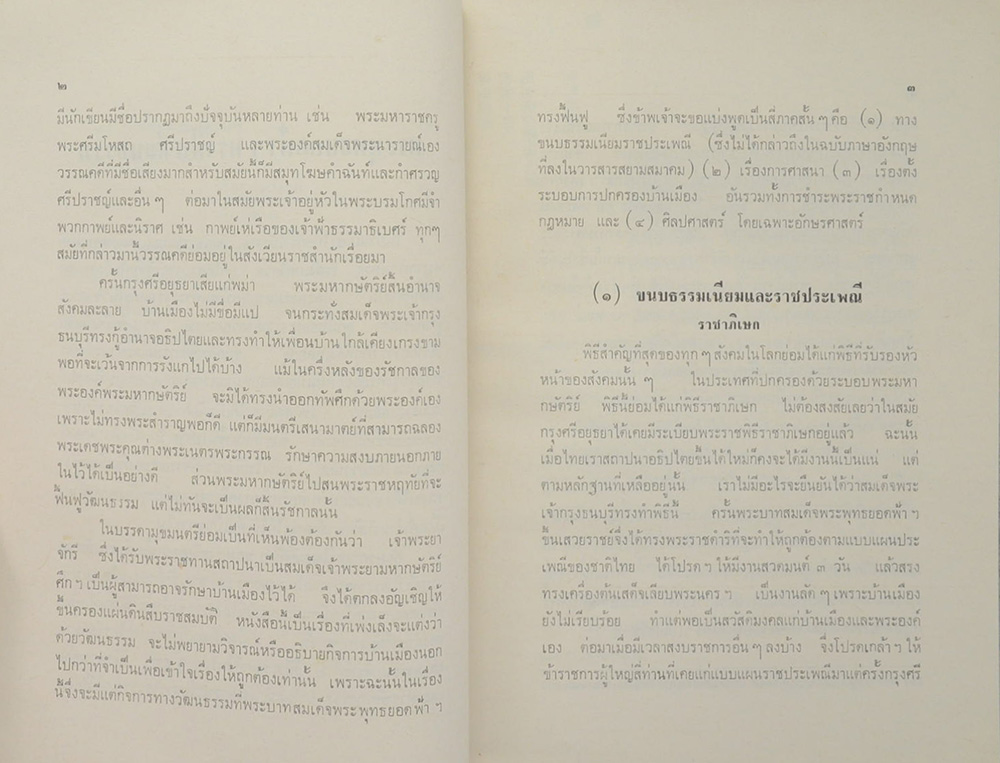 ๒
มีนักเขียนมีชื่อปรากฏมาถึงปัจจุบันหลายท่าน เช่น พระมหาราชครู
พระศรีมโหสถ ศรีปราชญ์ และพระองค์สมเด็จพระนารายณ์เอง
วรรณคดีที่มีชื่อเสียงมากสำหรับสมัยนี้ก็มีสมุทโฆษคำฉันท์และกำศรวญ
ศรีปราชญ์และอื่น ๆ ต่อมาในสมัยพระเจ้าอยู่หัวในพระบรมโกศมีจำ
พวกกาพย์และนิราศ เช่น กาพย์เห่เรือของเจ้าฟ้าธรรมาธิเบศร์ ทุกๆ
สมัยที่กล่าวมานี้วรรณคดีย่อมอยู่ในสังเวียนราชสำนักเรื่อยมา
ครั้นกรุงศรีอยุธยาเสียแก่พม่า พระมหากษัตริย์สิ้นอำนาจ
สังคมละลาย บ้านเมืองไม่มีขื่อมีแป จนกระทั่งสมเด็จพระเจ้ากรุง
ธนบุรีทรงกู้อำนาจอธิปไตยและทรงทำให้เพื่อนบ้านใกล้เคียงเกรงขาม
พอที่จะเว้นจากการรังแกไปได้บ้าง แม้ในครึ่งหลังของรัชกาลของ
พระองค์พระมหากษัตริย์ จะมิได้ทรงนำออกทัพศึกด้วยพระองค์เอง
เพราะไม่ทรงพระสำราญพอก็ดี แต่ก็มีมนตรีเสนามาตย์ที่สามารถฉลอง
พระเดชพระคุณต่างพระเนตรพระกรรณ รักษาความสงบภายนอกภาย
ในไว้ได้เป็นอย่างดี ส่วนพระมหากษัตริย์ไปสนพระราชหฤทัยที่จะ
ฟื้นฟูวัฒนธรรม แต่ไม่ทันจะเป็นผลก็สิ้นรัชกาลนั้น
ในบรรดามุขมนตรีย่อมเป็นที่เห็นพ้องต้องกันว่า เจ้าพระยา
จักรี ซึ่งได้รับพระราชทานสถาปนาเป็นสมเด็จเจ้าพระยามหากษัตริย์
ศึก ฯ เป็นผู้สามารถอาจรักษาบ้านเมืองไว้ได้ จึงได้ตกลงอัญเชิญให้
ขึ้นครองแผ่นดินสืบราชสมบัติ หนังสือนี้เป็นเรื่องที่เพ่งเล็งจะแต่งว่า
ด้วยวัฒนธรรม จะไม่พยายามวิจารณ์หรืออธิบายกิจการบ้านเมืองนอก
ไปกว่าที่จำเป็นเพื่อเข้าใจเรื่องให้ถูกต้องเท่านั้น เพราะฉะนั้นในเรื่อง
นี้จึงจะมีแต่กิจการทางวัฒนธรรมที่พระบาทสมเด็จพระพุทธยอดฟ้า ฯ
๓
ทรงฟื้นฟู ซึ่งข้าพเจ้าจะขอแบ่งพูดเป็นสี่ภาคสั้น ๆ คือ (๑) ทาง
ขนบธรรมเนียมราชประเพณี (ซึ่งไม่ได้กล่าวถึงในฉบับภาษาอังกฤษ
ที่ลงในวารสารสยามสมาคม) (๒) เรื่องการศาสนา (๓) เรื่องตั้ง
ระบอบการปกครองบ้านเมือง อันรวมทั้งการชำระพระราชกำหนด
กฎหมาย และ (๔) ศิลปศาสตร์ โดยเฉพาะอักษรศาสตร์
(๑) ขนบธรรมเนียมและราชประเพณี
ราชาภิเษก
พิธีสำคัญที่สุดของทุก ๆ สังคมในโลกย่อมได้แก่พิธีที่รับรองหัว
หน้าของสังคมนั้น ๆ ในประเทศที่ปกครองด้วยระบอบพระมหา
กษัตริย์ พิธีนี้ย่อมได้แก่พิธีราชาภิเษก ไม่ต้องสงสัยเลยว่าในสมัย
กรุงศรีอยุธยาได้เคยมีระเบียบพระราชพิธีราชาภิเษกอยู่แล้ว ฉะนั้น
เมื่อไทยเราสถาปนาอธิปไตยขึ้นได้ใหม่ก็คงจะได้มีงานนี้เป็นแน่ แต่
ตามหลักฐานที่เหลืออยู่นั้น เราไม่มีอะไรจะยืนยันได้ว่าสมเด็จพระ
เจ้ากรุงธนบุรีทรงทำพิธีนี้ ครั้นพระบาทสมเด็จพระพุทธยอดฟ้า ฯ
ขึ้นเสวยราชย์จึงได้ทรงพระราชดำริที่จะทำให้ถูกต้องตามแบบแผนประ
เพณีของชาติไทย ได้โปรด ฯ ให้มีงานสวดมนต์ ๓ วัน แล้วสรง
ทรงเครื่องต้นเสด็จเลียบพระนคร ฯ เป็นงานลัด ๆ เพราะบ้านเมือง
ยังไม่เรียบร้อย ทำแต่พอเป็นสวัสดิมงคลแก่บ้านเมืองและพระองค์
เอง ต่อมาเมื่อมีเวลาสงบราชการอื่น ๆ ลงบ้าง จึงโปรดเกล้า ฯ ให้
ข้าราชการผู้ใหญ่สี่ท่านที่เคยแก่แบบแผนราชประเพณีมาแต่ครั้งกรุงศรี